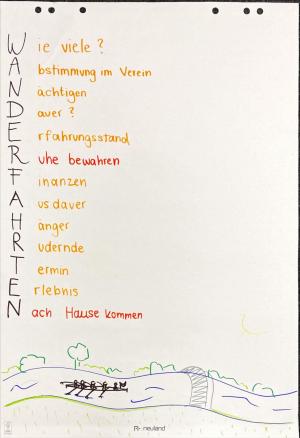 Wie viele ?
Abstimmung im Verein
Nächtigen
Dauer ?
Erfahrungsstand
Ruhe bewahren
Finanzen
Ausdauer
Hänger
Rudernde
Termin
Erlebnis
Nach Hause kommen
neuland